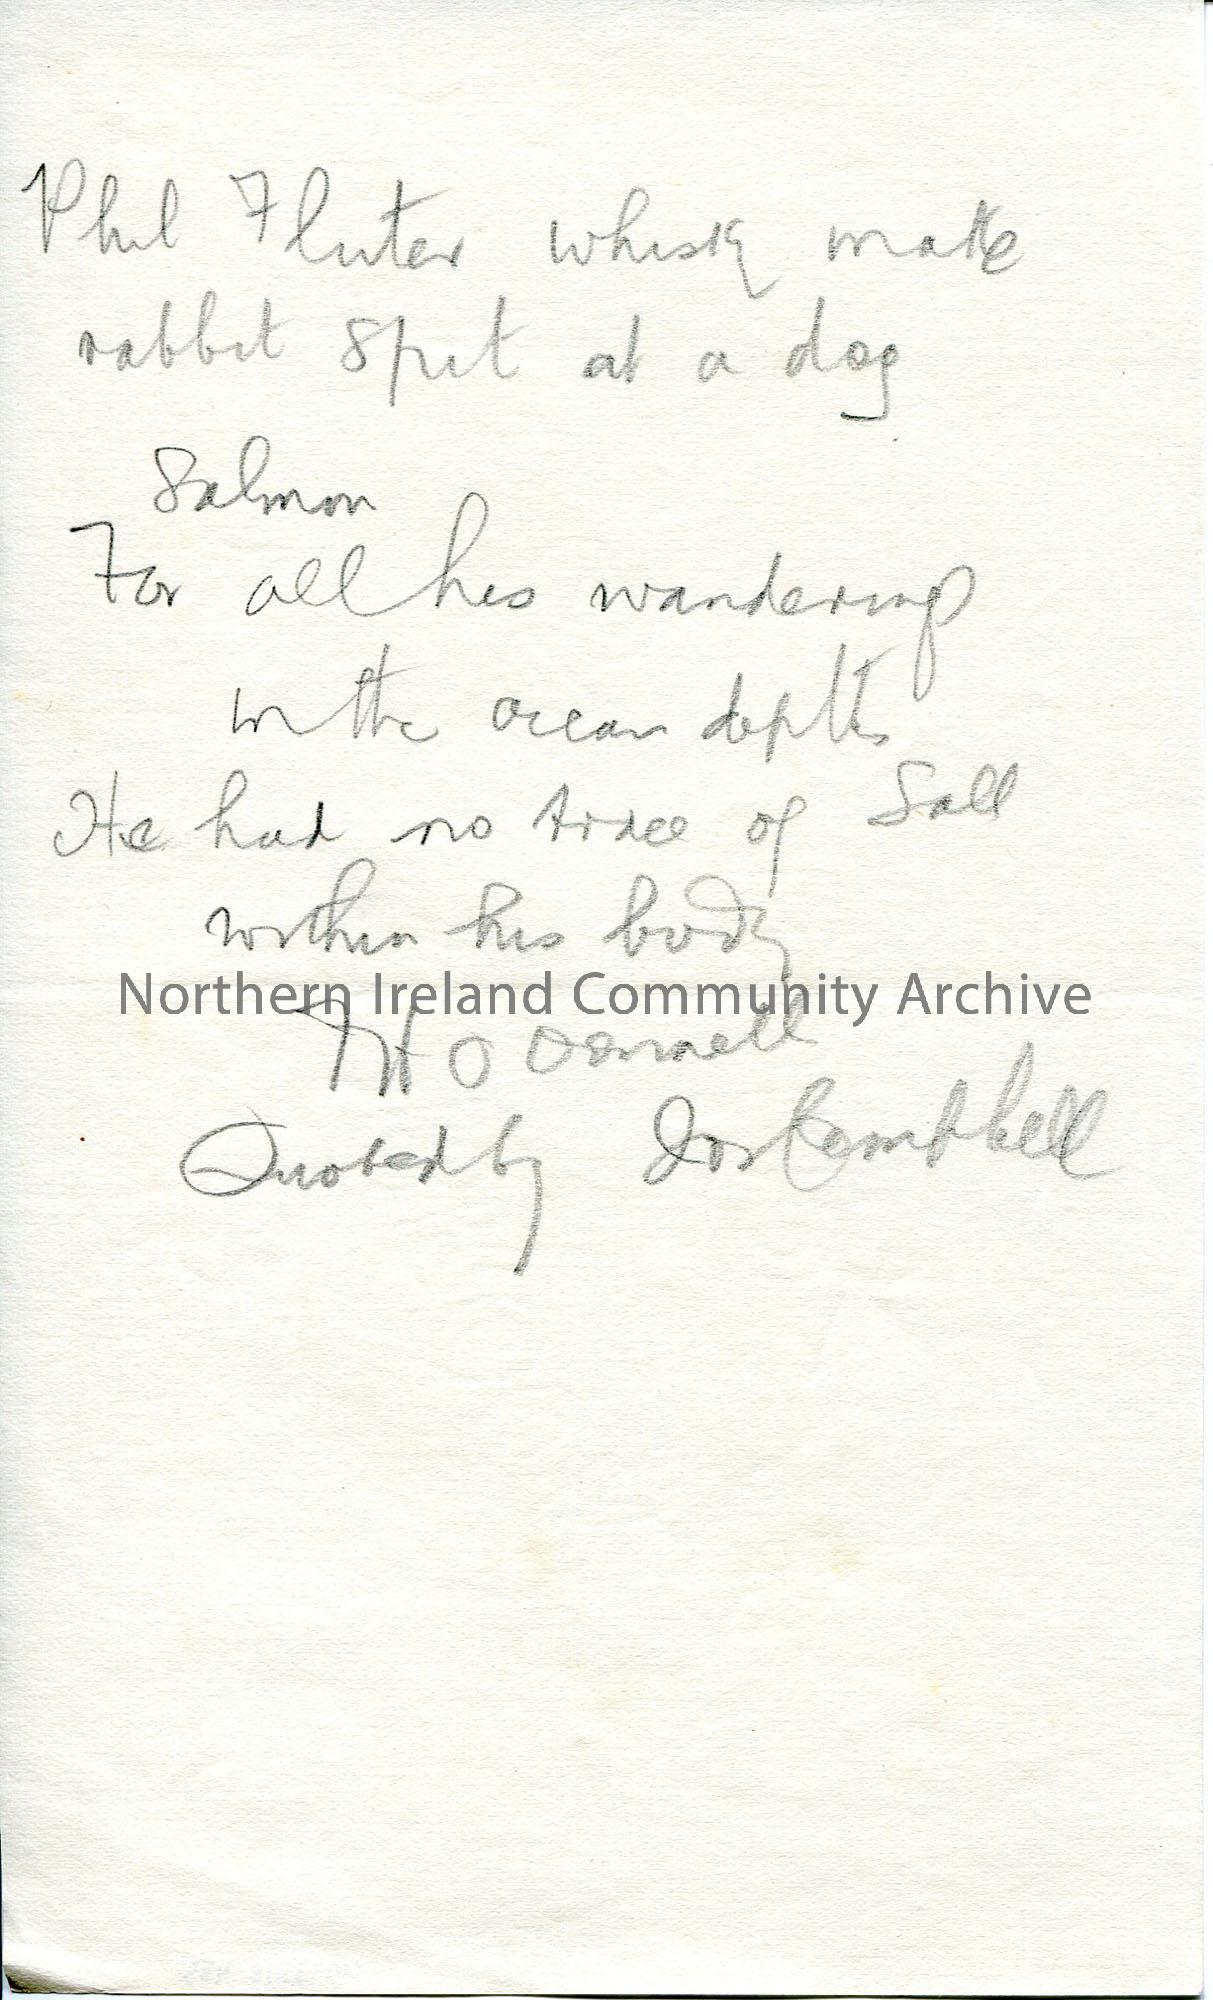 Phil Fluter whisky make
rabbit spit at a dog
Salmon
For all his wandering
in the ocean depths
He had no trace of Salt
within his body
Northern Ireland Community Archive
O Donnell
Quoted by Jos Campbell